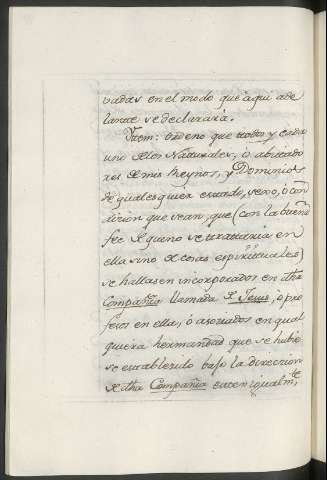 vadas en el modo que aqui ade
lante se declarará.
Ytem: ordeno que todos y cada
uno de los Naturales, ó abitado
res de mis Reynos, y Dominios
de qualesquier estado, sexo, ó con
dicion que sean, que (con la buena
fee de que no se trataria en
ella sino de cosas espirituales)
se hallasen incorporados en dha
Compañia llamada de Jesus, ó pro
fesos en ella, ó asociados en qual
quiera hermandad que se hubie
se establecido baxo la direccion
de dha Compañia esten igualmte